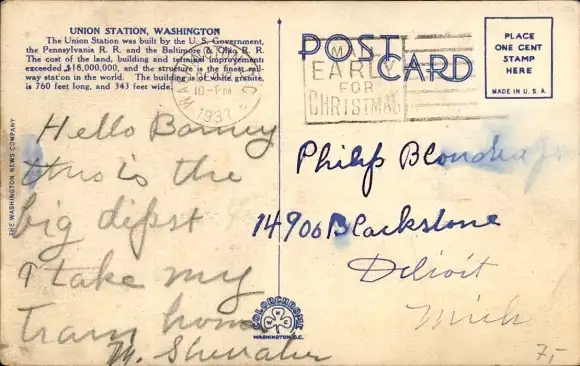 UNION STATION, WASHINGTON
The Union Station was built by the U. S. Government,
the Pennsylvania R. R. and the Baltimore & Ohio R. R.
The cost of the land, building and terminal improvements
exceeded $18,000,000, and the structure is the finest rail-
way station in the world. The building is of white granite,
is 760 feet long, and 343 feet wide.
THE WASHINGTON NEWS COMPANY
10-PM
1937
MAIL
EARLY
FOR
CHRISTMAS
POST CARD
PLACE
ONE CENT
STAMP
HERE
MADE IN U. S. A.
Hello Barney
this is the
big dipst
I take my
train home
M.
Philip
14900 Blackstone
Detroit
Mich
COLORCHROME
WASHINGTON, D.C.
7,-